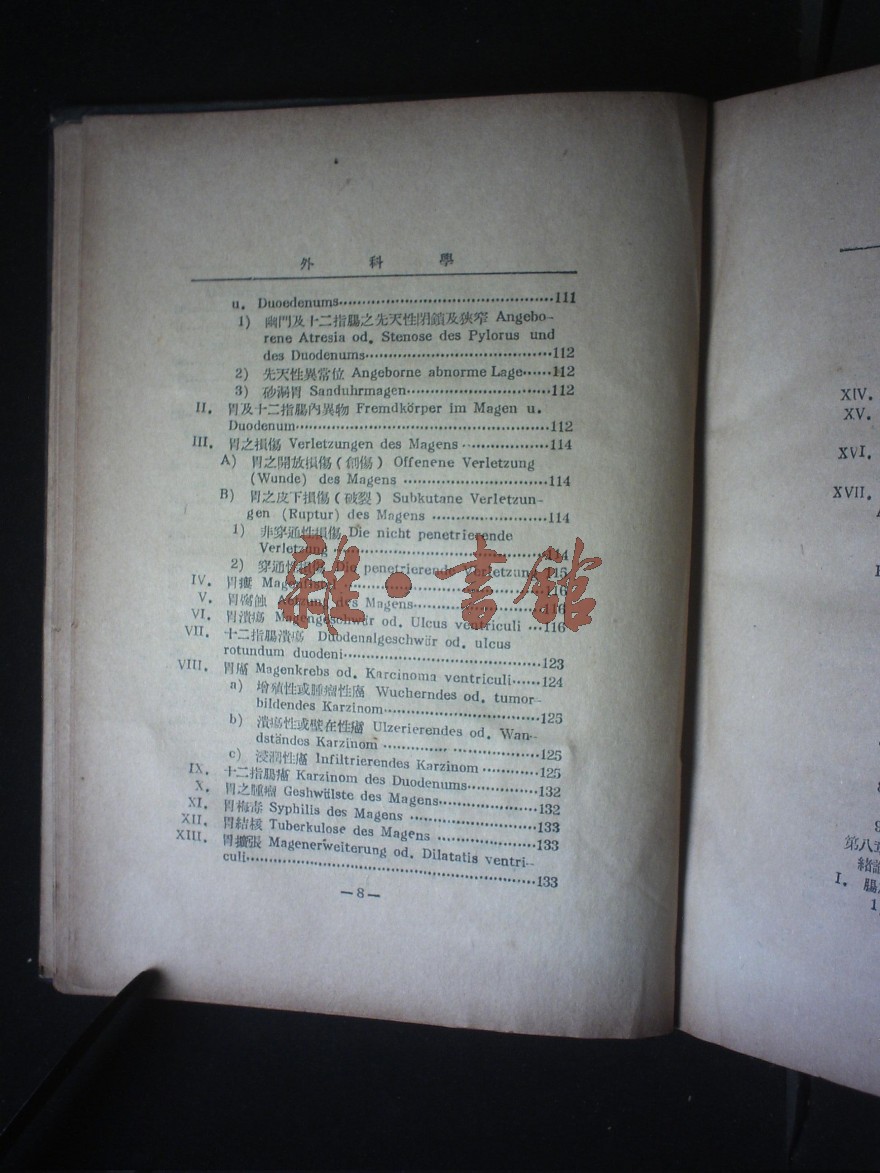 外科學
u. Duoedenums 111
1) 幽門及十二指腸之先天性閉鎖及狹窄 Angebo-
rene Atresia od. Stenose des Pylorus und
des Duodenums 112
2) 先天性異常位 Angeborne abnorme Lage 112
3) 砂漏胃 Sanduhrmagen 112
II. 胃及十二指腸內異物 Fremdkörper im Magen u.
Duodenum 112
III. 胃之損傷 Verletzungen des Magens 114
A) 胃之開放損傷(創傷) Offenene Verletzung
(Wunde) des Magens 114
B) 胃之皮下損傷(破裂) Subkutane Verletzun-
gen (Ruptur) des Magens 114
1) 非穿通性損傷 Die nicht penetrierende
Verletzung 114
2) 穿通性損傷 Die penetrierende Verletzung 115
IV. 胃瘻 Magenfistel 116
V. 胃腐蝕 Aetzung des Magens 116
VI. 胃潰瘍 Magengeschwär od. Ulcus ventriculi 116
VII. 十二指腸潰瘍 Duodenalgeschwär od. ulcus
rotundum duodeni 123
VIII. 胃癌 Magenkrebs od. Karcinoma ventriculi 124
a) 增殖性或腫瘤性癌 Wucherndes od. tumor-
bildendes Karzinom 125
b) 潰瘍性或壁在性癌 Ulzerierendes od. Wan-
dständes Karzinom 125
c) 浸潤性癌 Infiltrierendes Karzinom 125
IX. 十二指腸癌 Karzinom des Duodenums 132
X. 胃之腫瘤 Geshwülste des Magens 132
XI. 胃梅毒 Syphilis des Magens 133
XII. 胃結核 Tuberkulose des Magens 133
XIII. 胃擴張 Magenerweiterung od. Dilatatis ventri-
culi 133
—8—
雜·書館
XIV.
XV.
XVI.
XVII.
第八五
緒論
I. 腸
1